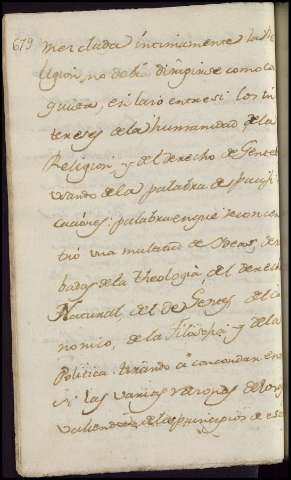 679
mesclada intimamente la Re
ligion, no debia dirigirse como lo
quiera, enlasó entre si los in
tereses de la humanidad, de la
Religion y del derecho de Gentes
usando de la palabra despacifi
caciónes: palabra en que se con
tró una multitud de Ydeas, de
badas de la theologia del derecho
Natural, del de Gentes, del
nomico, de la filosofia y de la
Politica. tirando á concordar en
si las varias razones de
valiendose de los principios de es